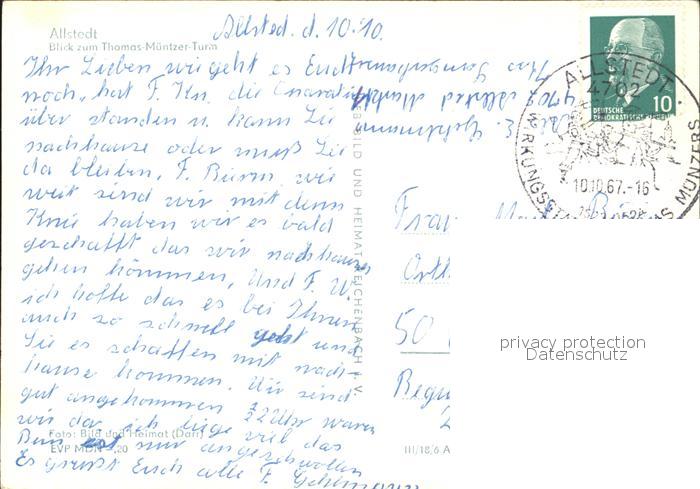 Allstedt
Blick zum Thomas-Müntzer-Turm
Allsted. d. 10.10.
Ihr Lieben wie geht es Euch
noch, hat F. Kn. die
über standen u. kann Sie
nachhause oder muß Sie
da bleiben. F. Bürm wie
weit sind wir mit dem
Knie haben wir es bald
geschafft das wir nachhause
gehen kömmen, Und F. W.
ich hoffe das es bei Ihnen
auch so schnell geht und
Sie es schaffen mit nach
hause kommen. Wir sind
gut angekommen ½2 Uhr waren
wir da, ich liege viel das
Bein ist nur angeschwollen
Es grüßt Euch alle F.
Foto: Bild und Heimat (Darr)
EVP MDN -,20
BILD UND HEIMAT REICHENBACH I. V.
III/18/6 A
4702 Allsted
DEUTSCHE
DEMOKRATISCHE REPUBLIK
10
ALLSTEDT
4702
10.10.67.-16
WIRKUNGSST
AS MÜNZERS
Frau
Orth
50
privacy protection
Datenschutz